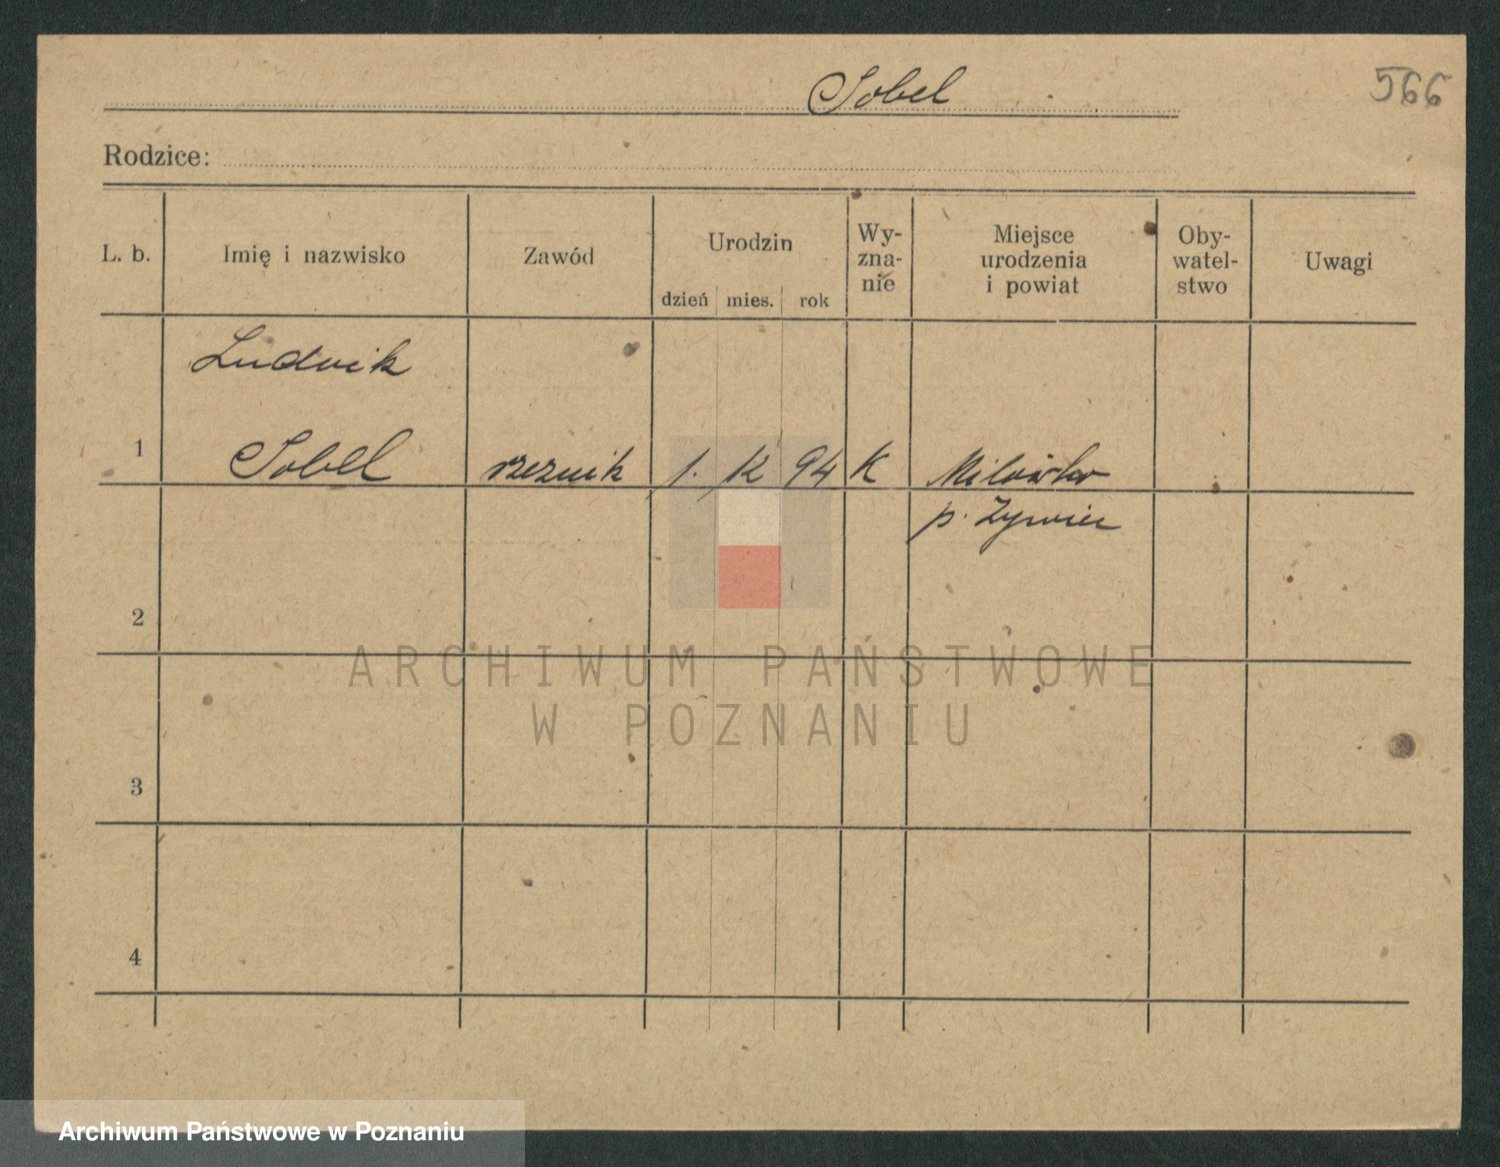 Sobel
566
Rodzice:
L. b.
Imię i nazwisko
Zawód
Urodzin
dzień mies. rok
Wy-
zna-
nie
Miejsce
urodzenia
i powiat
Oby-
watel-
stwo
Uwagi
Ludvik
1 Sobel rzeznik 1. 94 K Milówka
p. Żywiec
2
3
4
ARCHIWUM PAŃSTWOWE
W POZNANIU
Archiwum Państwowe w Poznaniu